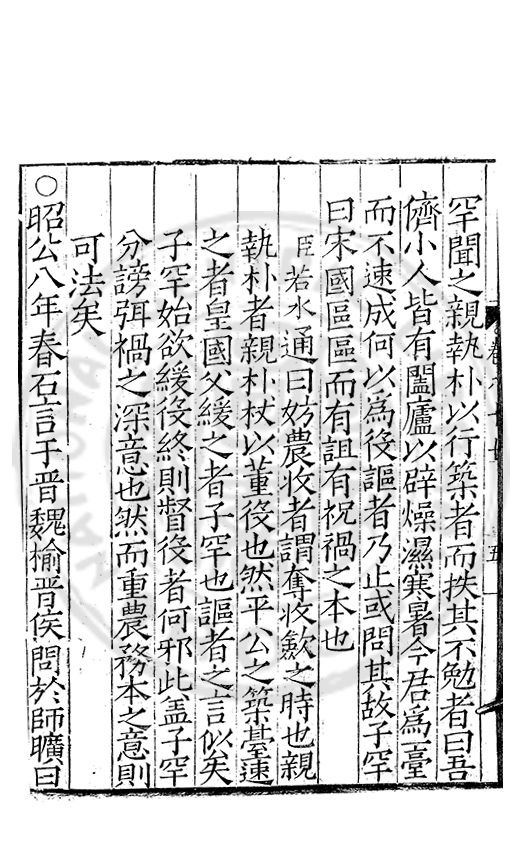 罕聞之親執朴以行築者而抶其不勉者曰吾
儕小人皆有闔廬以辟燥濕寒暑今君爲一臺
而不速成何以爲役謳者乃止或問其故子罕
曰宋國區區而有詛有祝禍之本也
臣若水通曰妨農收者謂奪收斂之時也親
執朴者親朴杖以董役也然平公之築臺速
之者皇國父緩之者子罕也謳者之言似矣
子罕始欲緩役終則督役者何邪此盖子罕
分謗弭禍之深意也然而重農務本之意則
可法矣
○昭公八年春石言于晋魏榆晋侯問於師曠曰